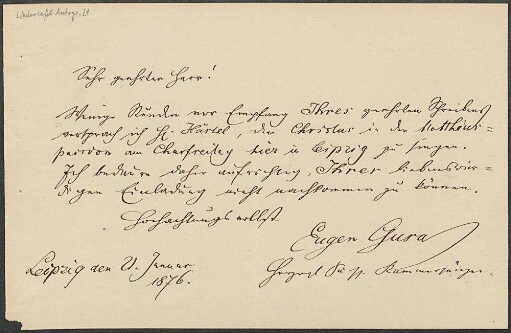 Sehr geehrter Herr!
Wenige Stunden vor Empfang Ihres geehrten Schreibens
versprach ich H. Härtel, den Christus in der Matthäus-
passion am Charfreitag hier in Leipzig zu singen.
Ich bedaure daher aufrichtig, Ihrer liebenswür-
digen Einladung nicht nachkommen zu können.
Hochachtungsvollst
Eugen Gura
Leipzig den 21. Januar
1876.
Kammersänger.